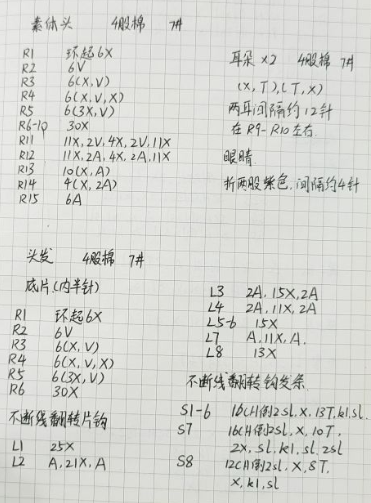 素体头 4股棉 7#
R1 环起6X
R2 6V
R3 6(X,V)
R4 6(X,V,X)
R5 6(3X,V)
R6-10 30X
R11 11X,2V,4X,2V,11X
R12 11X,2A,4X,2A,11X
R13 10(X,A)
R14 4(X,2A)
R15 6A
耳朵×2 4股棉 7#
(X,T),(T,X)
两耳间隔约12针
在R9-R10左右
眼睛
拆两股紫色,间隔约4针
头发 4股棉 7#
底片(内半针)
R1 环起6X
R2 6V
R3 6(X,V)
R4 6(X,V,X)
R5 6(3X,V)
R6 30X
不断线翻转片钩
L1 25X
L2 A,21X,A
L3 2A,15X,2A
L4 2A,11X,2A
L5-6 15X
L7 A,11X,A
L8 13X
不断线翻转钩发条
S1-6 16CH倒2sl,X,13T,k1,sl
S7 16CH倒2sl,X,10T,
2X,sl,k1,sl,2sl
S8 12CH倒2sl,X,8T,
X,k1,sl